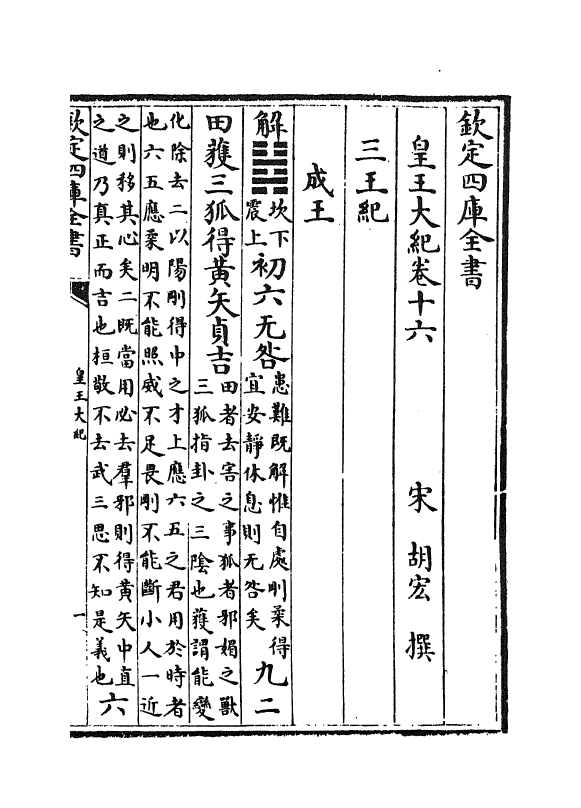 欽定四庫全書
皇王大紀卷十六
宋 胡宏 撰
三王紀
成王
解䷧坎下
震上初六无咎患難既解惟自處剛柔得
宜安靜休息則无咎矣九二
田獲三狐得黃矢貞吉田者去害之事狐者邪媚之獸
三狐指卦之三陰也獲謂能變
化除去二以陽剛得中之才上應六五之君用於時者
也六五應柔明不能照威不足畏剛不能斷小人一近
之則移其心矣二既當用必去羣邪則得黃矢中直
之道乃真正而吉也桓敬不去武三思不知是義也六
欽定四庫全書
皇王大紀
一